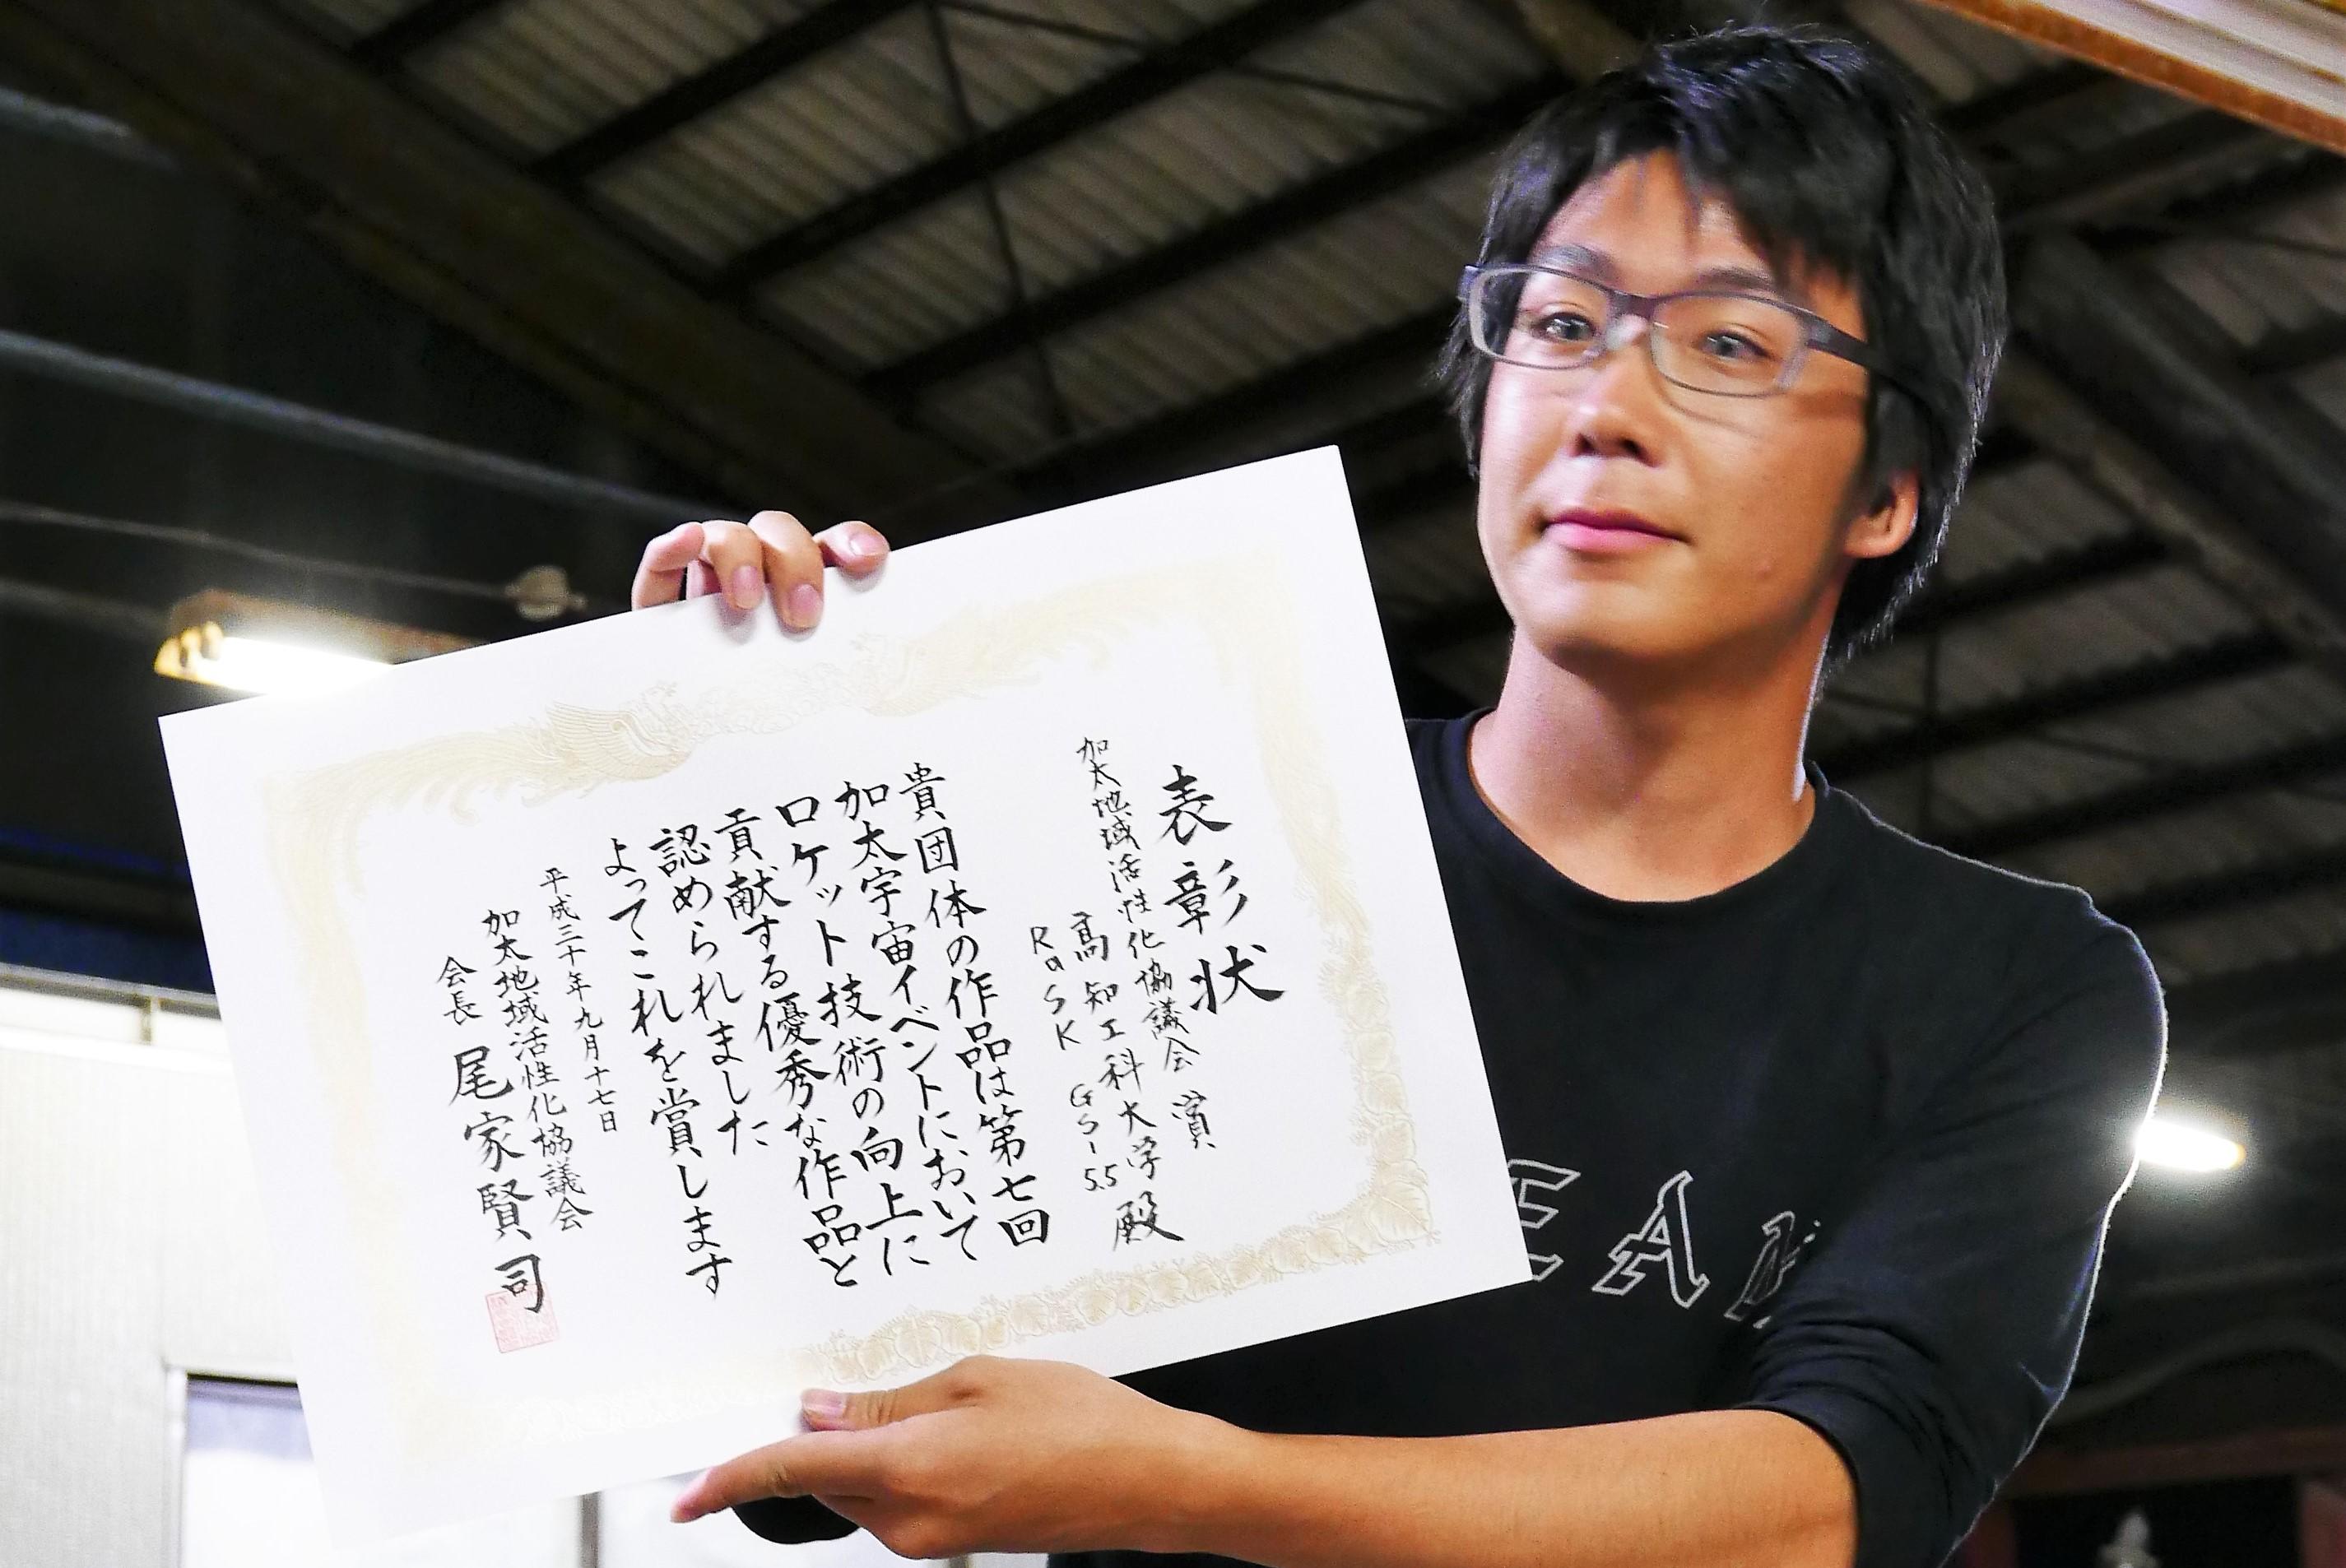 表彰状
加太地域活性化協議会賞
高知工科大学 殿
RaSK GS-5.5
貴団体の作品は第七回
加太宇宙イベントにおいて
ロケット技術の向上に
貢献する優秀な作品と
認められました
よってこれを賞します
平成三十年九月十七日
加太地域活性化協議会
会長 尾家賢司
EA